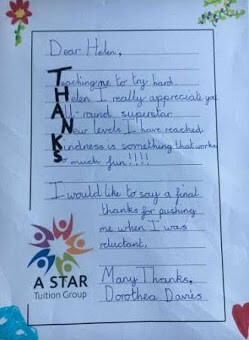 Dear Helen,
Teaching me to try hard.
Helen I really appreciate you
All-round superstar
Near levels I have reached
Kindness is something that works
So much fun!!!!
I would like to say a final
thanks for pushing
me when I was
reluctant.
Many Thanks,
Dorothea Davies
A STAR
Tuition Group